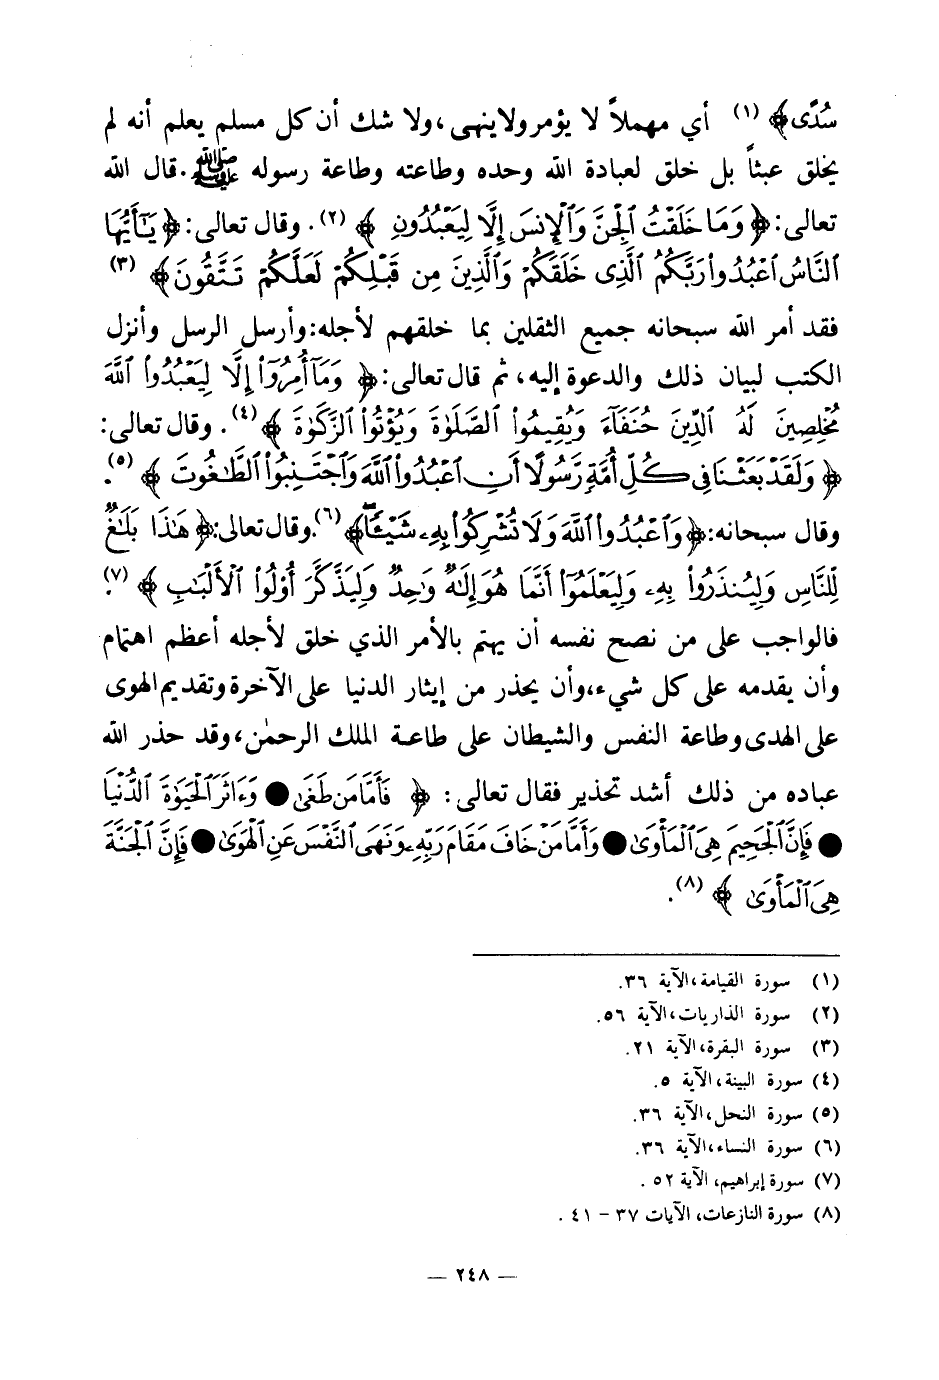 سُدًى﴾ (١) أي مهملاً لا يؤمر ولاينهى،ولا شك أن كل مسلم يعلم أنه لم
يخلق عبثاً بل خلق لعبادة الله وحده وطاعته وطاعة رسوله ﷺ.قال الله
تعالى:﴿وَمَا خَلَقْتُ ٱلْجِنَّ وَٱلْإِنسَ إِلَّا لِيَعْبُدُونِ ﴾ (٢). وقال تعالى:﴿ يَـٰٓأَيُّهَا
ٱلنَّاسُ ٱعْبُدُوا۟ رَبَّكُمُ ٱلَّذِى خَلَقَكُمْ وَٱلَّذِينَ مِن قَبْلِكُمْ لَعَلَّكُمْ تَتَّقُونَ﴾ (٣)
فقد أمر الله سبحانه جميع الثقلين بما خلقهم لأجله:وأرسل الرسل وأنزل
الكتب لبيان ذلك والدعوة إليه، ثم قال تعالى:﴿ وَمَآ أُمِرُوٓا۟ إِلَّا لِيَعْبُدُوا۟ ٱللَّهَ
مُخْلِصِينَ لَهُ ٱلدِّينَ حُنَفَآءَ وَيُقِيمُوا۟ ٱلصَّلَوٰةَ وَيُؤْتُوا۟ ٱلزَّكَوٰةَ ﴾(٤). وقال تعالى:
﴿ وَلَقَدْ بَعَثْنَا فِى كُلِّ أُمَّةٍ رَّسُولًا أَنِ ٱعْبُدُوا۟ ٱللَّهَ وَٱجْتَنِبُوا۟ ٱلطَّـٰغُوتَ ﴾ (٥).
وقال سبحانه:﴿وَٱعْبُدُوا۟ ٱللَّهَ وَلَا تُشْرِكُوا۟ بِهِۦ شَيْـًٔا﴾(٦).وقال تعالى:﴿ هَـٰذَا بَلَـٰغٌ
لِّلنَّاسِ وَلِيُنذَرُوا۟ بِهِۦ وَلِيَعْلَمُوٓا۟ أَنَّمَا هُوَ إِلَـٰهٌ وَٰحِدٌ وَلِيَذَّكَّرَ أُو۟لُوا۟ ٱلْأَلْبَـٰبِ ﴾ (٧).
فالواجب على من نصح نفسه أن يهتم بالأمر الذي خلق لأجله أعظم اهتمام
وأن يقدمه على كل شيء،وأن يحذر من إيثار الدنيا على الآخرة وتقديم الهوى
على الهدى وطاعة النفس والشيطان على طاعة الملك الرحمٰن،وقد حذر الله
عباده من ذلك أشد تحذير فقال تعالى: ﴿ فَأَمَّا مَن طَغَىٰ ● وَءَاثَرَ ٱلْحَيَوٰةَ ٱلدُّنْيَا
● فَإِنَّ ٱلْجَحِيمَ هِىَ ٱلْمَأْوَىٰ ● وَأَمَّا مَنْ خَافَ مَقَامَ رَبِّهِۦ وَنَهَى ٱلنَّفْسَ عَنِ ٱلْهَوَىٰ ● فَإِنَّ ٱلْجَنَّةَ
هِىَ ٱلْمَأْوَىٰ ﴾ (٨).
(١) سورة القيامة،الآية ٣٦.
(٢) سورة الذاريات،الآية ٥٦.
(٣) سورة البقرة،الآية ٢١.
(٤) سورة البينة،الآية ٥.
(٥) سورة النحل،الآية ٣٦.
(٦) سورة النساء،الآية ٣٦.
(٧) سورة إبراهيم، الآية ٥٢ .
(٨) سورة النازعات، الآيات ٣٧ - ٤١ .
— ٢٤٨ —